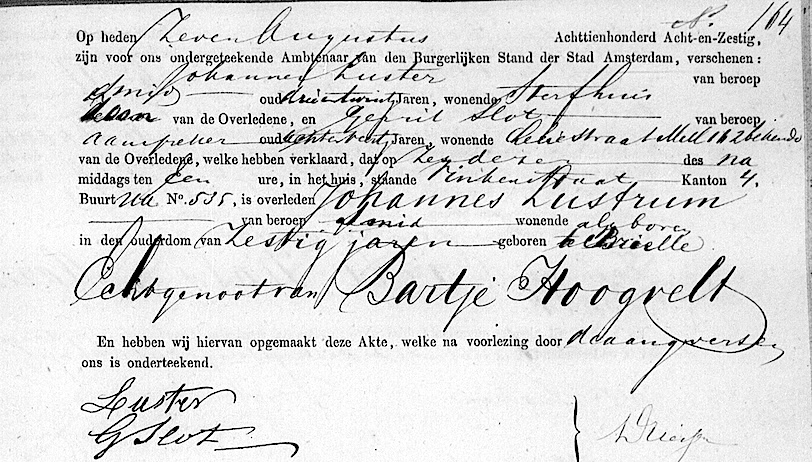 No. 164
Op heden Zeven Augustus Achttienhonderd Acht-en-Zestig,
zijn voor ons ondergeteekende Ambtenaar van den Burgerlijken Stand der Stad Amsterdam, verschenen:
Johannes Luster van beroep
smid oud Jaren, wonende Sterfhuis
Zoon van de Overledene, en Gerrit Slot van beroep
aanspreker oud Jaren, wonende Leliestraat 162 bekende
van de Overledene, welke hebben verklaard, dat op Zes dezer des na
middags ten Een ure, in het huis, staande Vinkenstraat Kanton 4.
Buurt No. 535, is overleden Johannes Lustrum
van beroep smid wonende als boven
in den ouderdom van Zestig jaren geboren te Brielle
Echtgenoot van Bartje Hoogvelt
En hebben wij hiervan opgemaakt deze Akte, welke na voorlezing door de aangevers en
ons is onderteekend.
Luster
G Slot